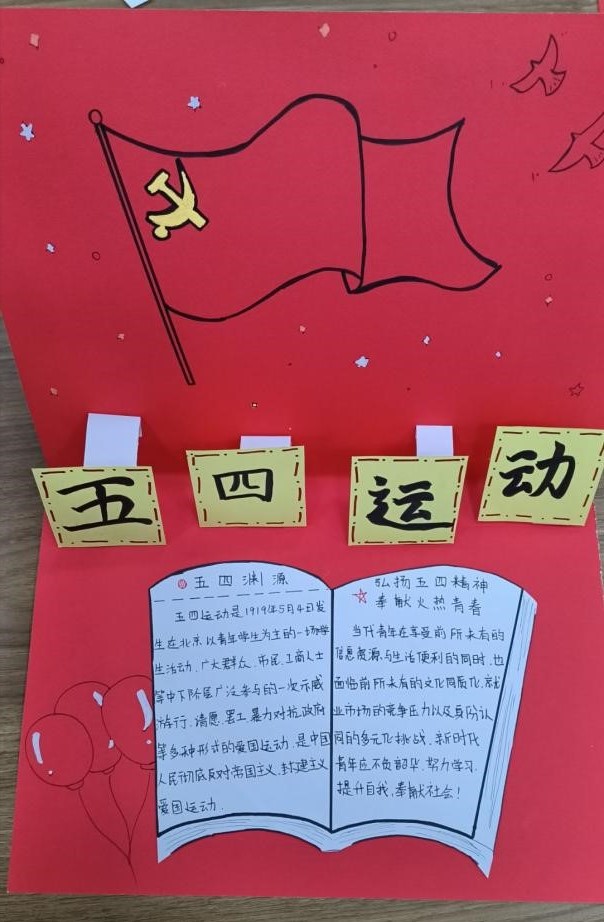 五四运动
五四渊源
五四运动是1919年5月4日发
生在北京以青年学生为主的一场学
生活动.广大群众、市民、工商人士
等中下阶层广泛参与的一次示威
游行、请愿、罢工、暴力对抗政府
等多种形式的爱国运动.是中国
人民彻底反对帝国主义、封建主义
爱国运动.
弘扬五四精神
奉献火热青春
当代青年在享受前所未有的
信息资源与生活便利的同时,也
面临前所未有的文化同质化、就
业市场的竞争压力以及身份认
同的多元化挑战.新时代
青年应不负韶华、努力学习.
提升自我,奉献社会！